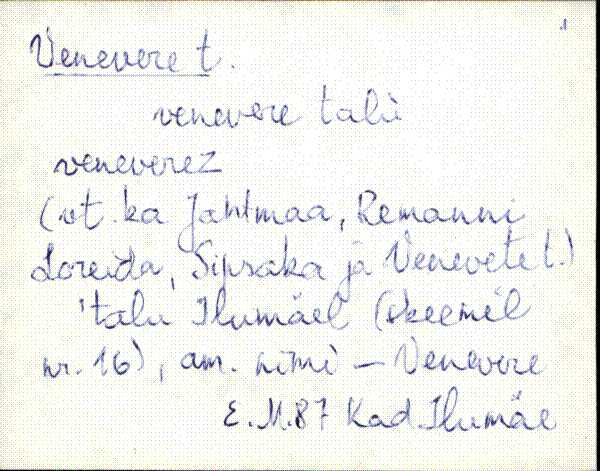 1
Venevere t.
venevere talù
veneverez
(vt. ka Jahtmaa, Remanni
Loreida, Sipsaka ja Venevete t.)
'talu Ilumäel (skeemil
nr. 16), am. nimi – Venevere
E.M.87 Kad. Ilumäe